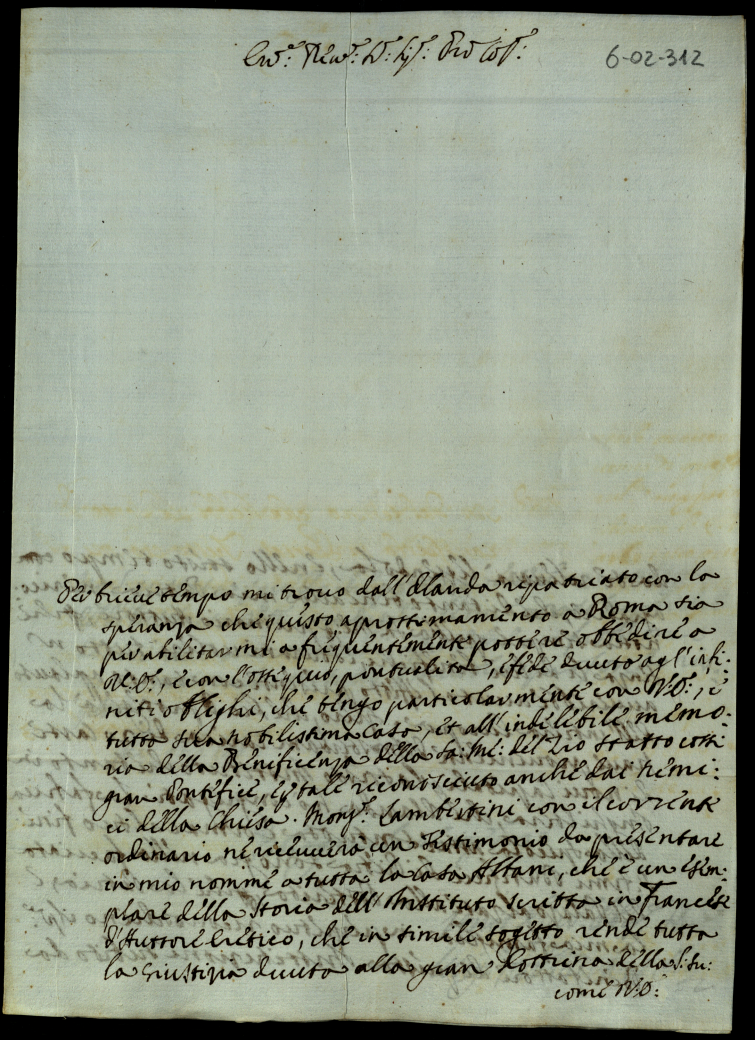 Em.º Rev.º Sr: Sig.r Pro Col.mo:
6-02-312
Per brieve tempo mi trovo dall'Olanda ripatriato con la
speranza che questo aprossimamento a Roma sia
per abilitarmi a frequentemente possere obbedire a
V:E:, e con l'ossequio, pontualita, e fede dovuta agl'infi:
niti oblighi, che tengo particolarmente con V:E:, e
tutta sua nobilissima Casa, et all'indelebile memo:
ria della Benificienza della Sa: Me: del Zio statto cossi
gran Pontefice, e p tale riconosciuto anche dai nemi:
ci della Chiesa. Mong.r Lambertini con il corrente
ordinario ne ricevera un Testimonio da presentare
in mio nomme a tutta la Casa Albani, che è un esem:
plare della Storia dell'Instituto scritta in Francese
d'Auttore Eretico, che in simille sogetto rende tutta
la Giustizia dovuta alla gran Dottrina della S: Su:
come V:E: